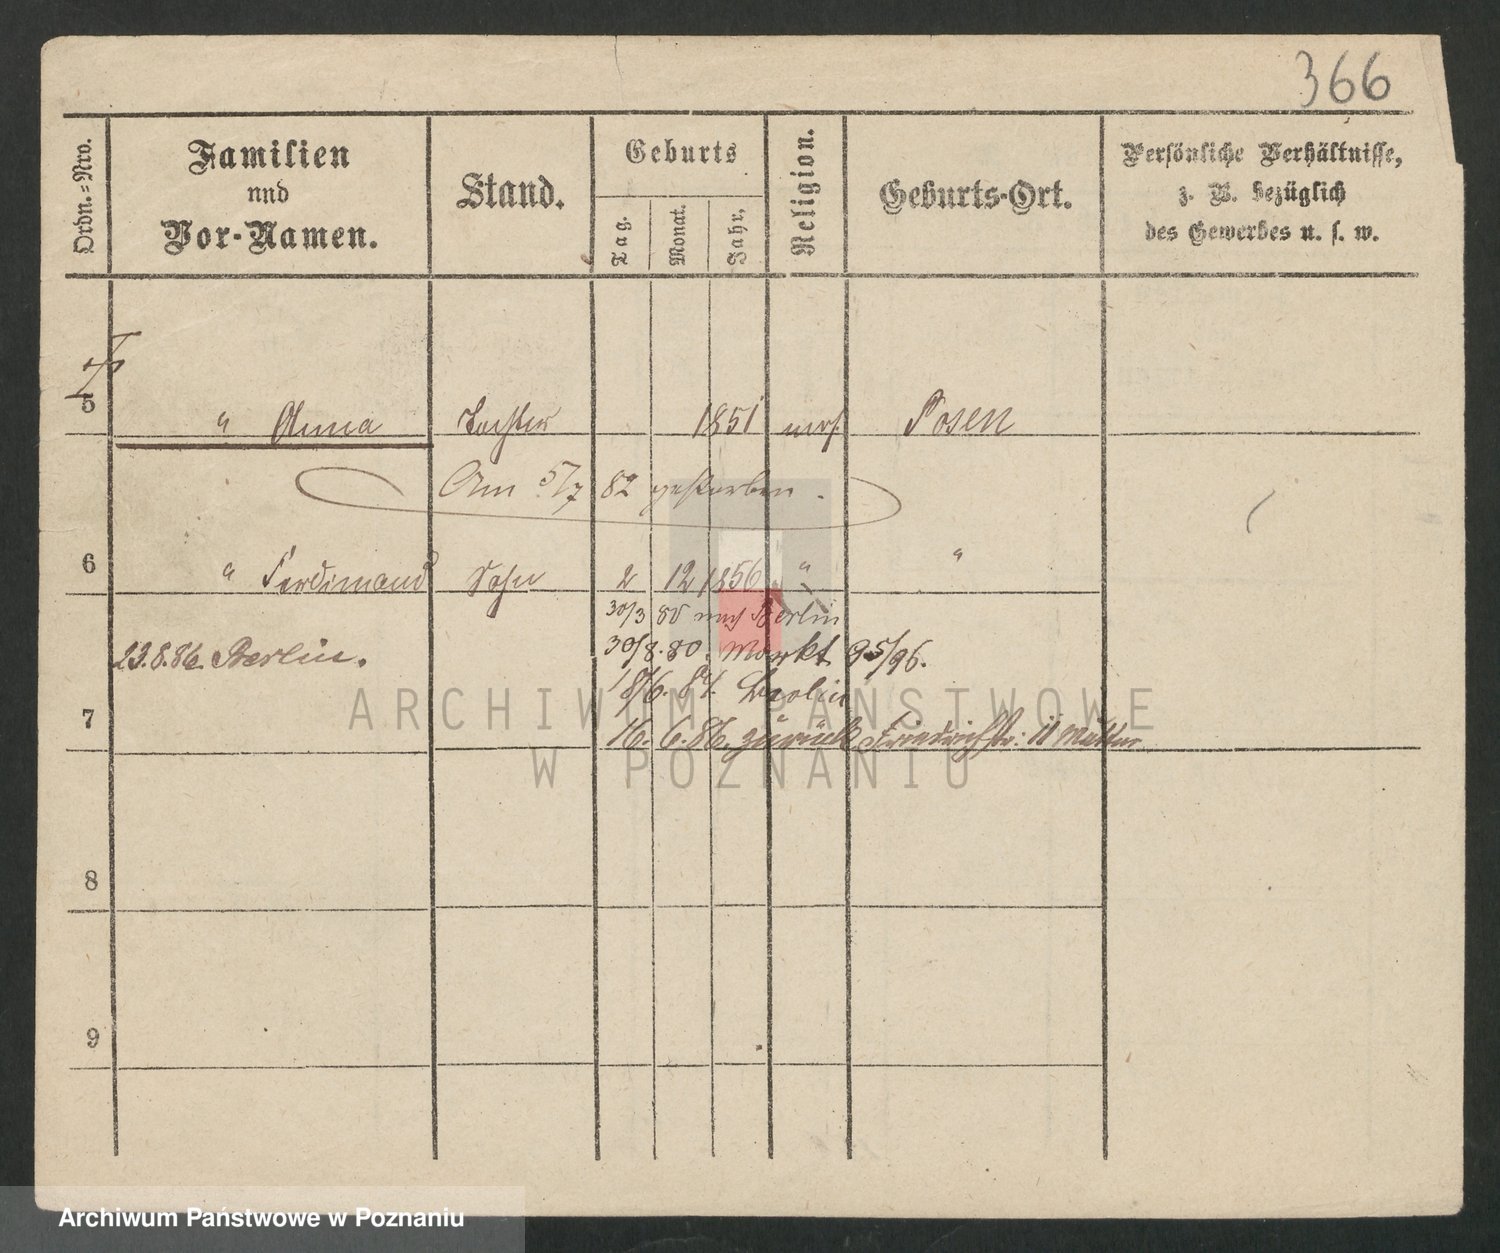 366
Ordn.=Nro.
Familien
und
Vor-Namen.
Stand.
Geburts
Tag.
Monat.
Jahr.
Religion.
Geburts-Ort.
Persönliche Verhältnisse,
z. B. bezüglich
des Gewerbes u. s. w.
5
" Anna Tochter 1851 mos. Posen
Am 5/7 82 gestorben.
6
" Ferdinand Sohn 2 12 1856 " "
30/3 80 nach Berlin
23.8.86. Berlin.
30/8.80. Markt 95/96.
18/6. 84. Berlin
7
16. 6. 86. zurück Friedrichstr: 11 Mutter
8
9
ARCHIWUM PAŃSTWOWE
W POZNANIU
Archiwum Państwowe w Poznaniu